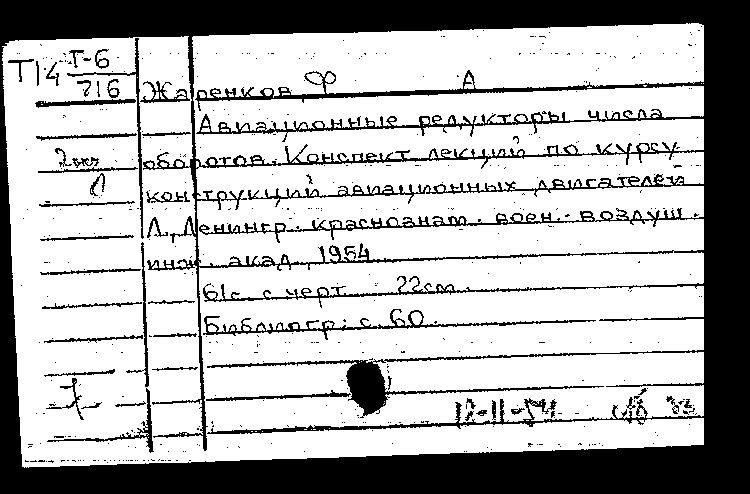 Т14 Т-6
716
Жаренков, Ф А
Авиационные редукторы числа
2 экз
оборотов. Конспект лекций по курсу
конструкций авиационных двигателей
Л., Ленингр. краснознам. воен.-воздуш.
инж. акад., 1954
61с. с черт. 22см.
Библиогр: с. 60.
12-11-54